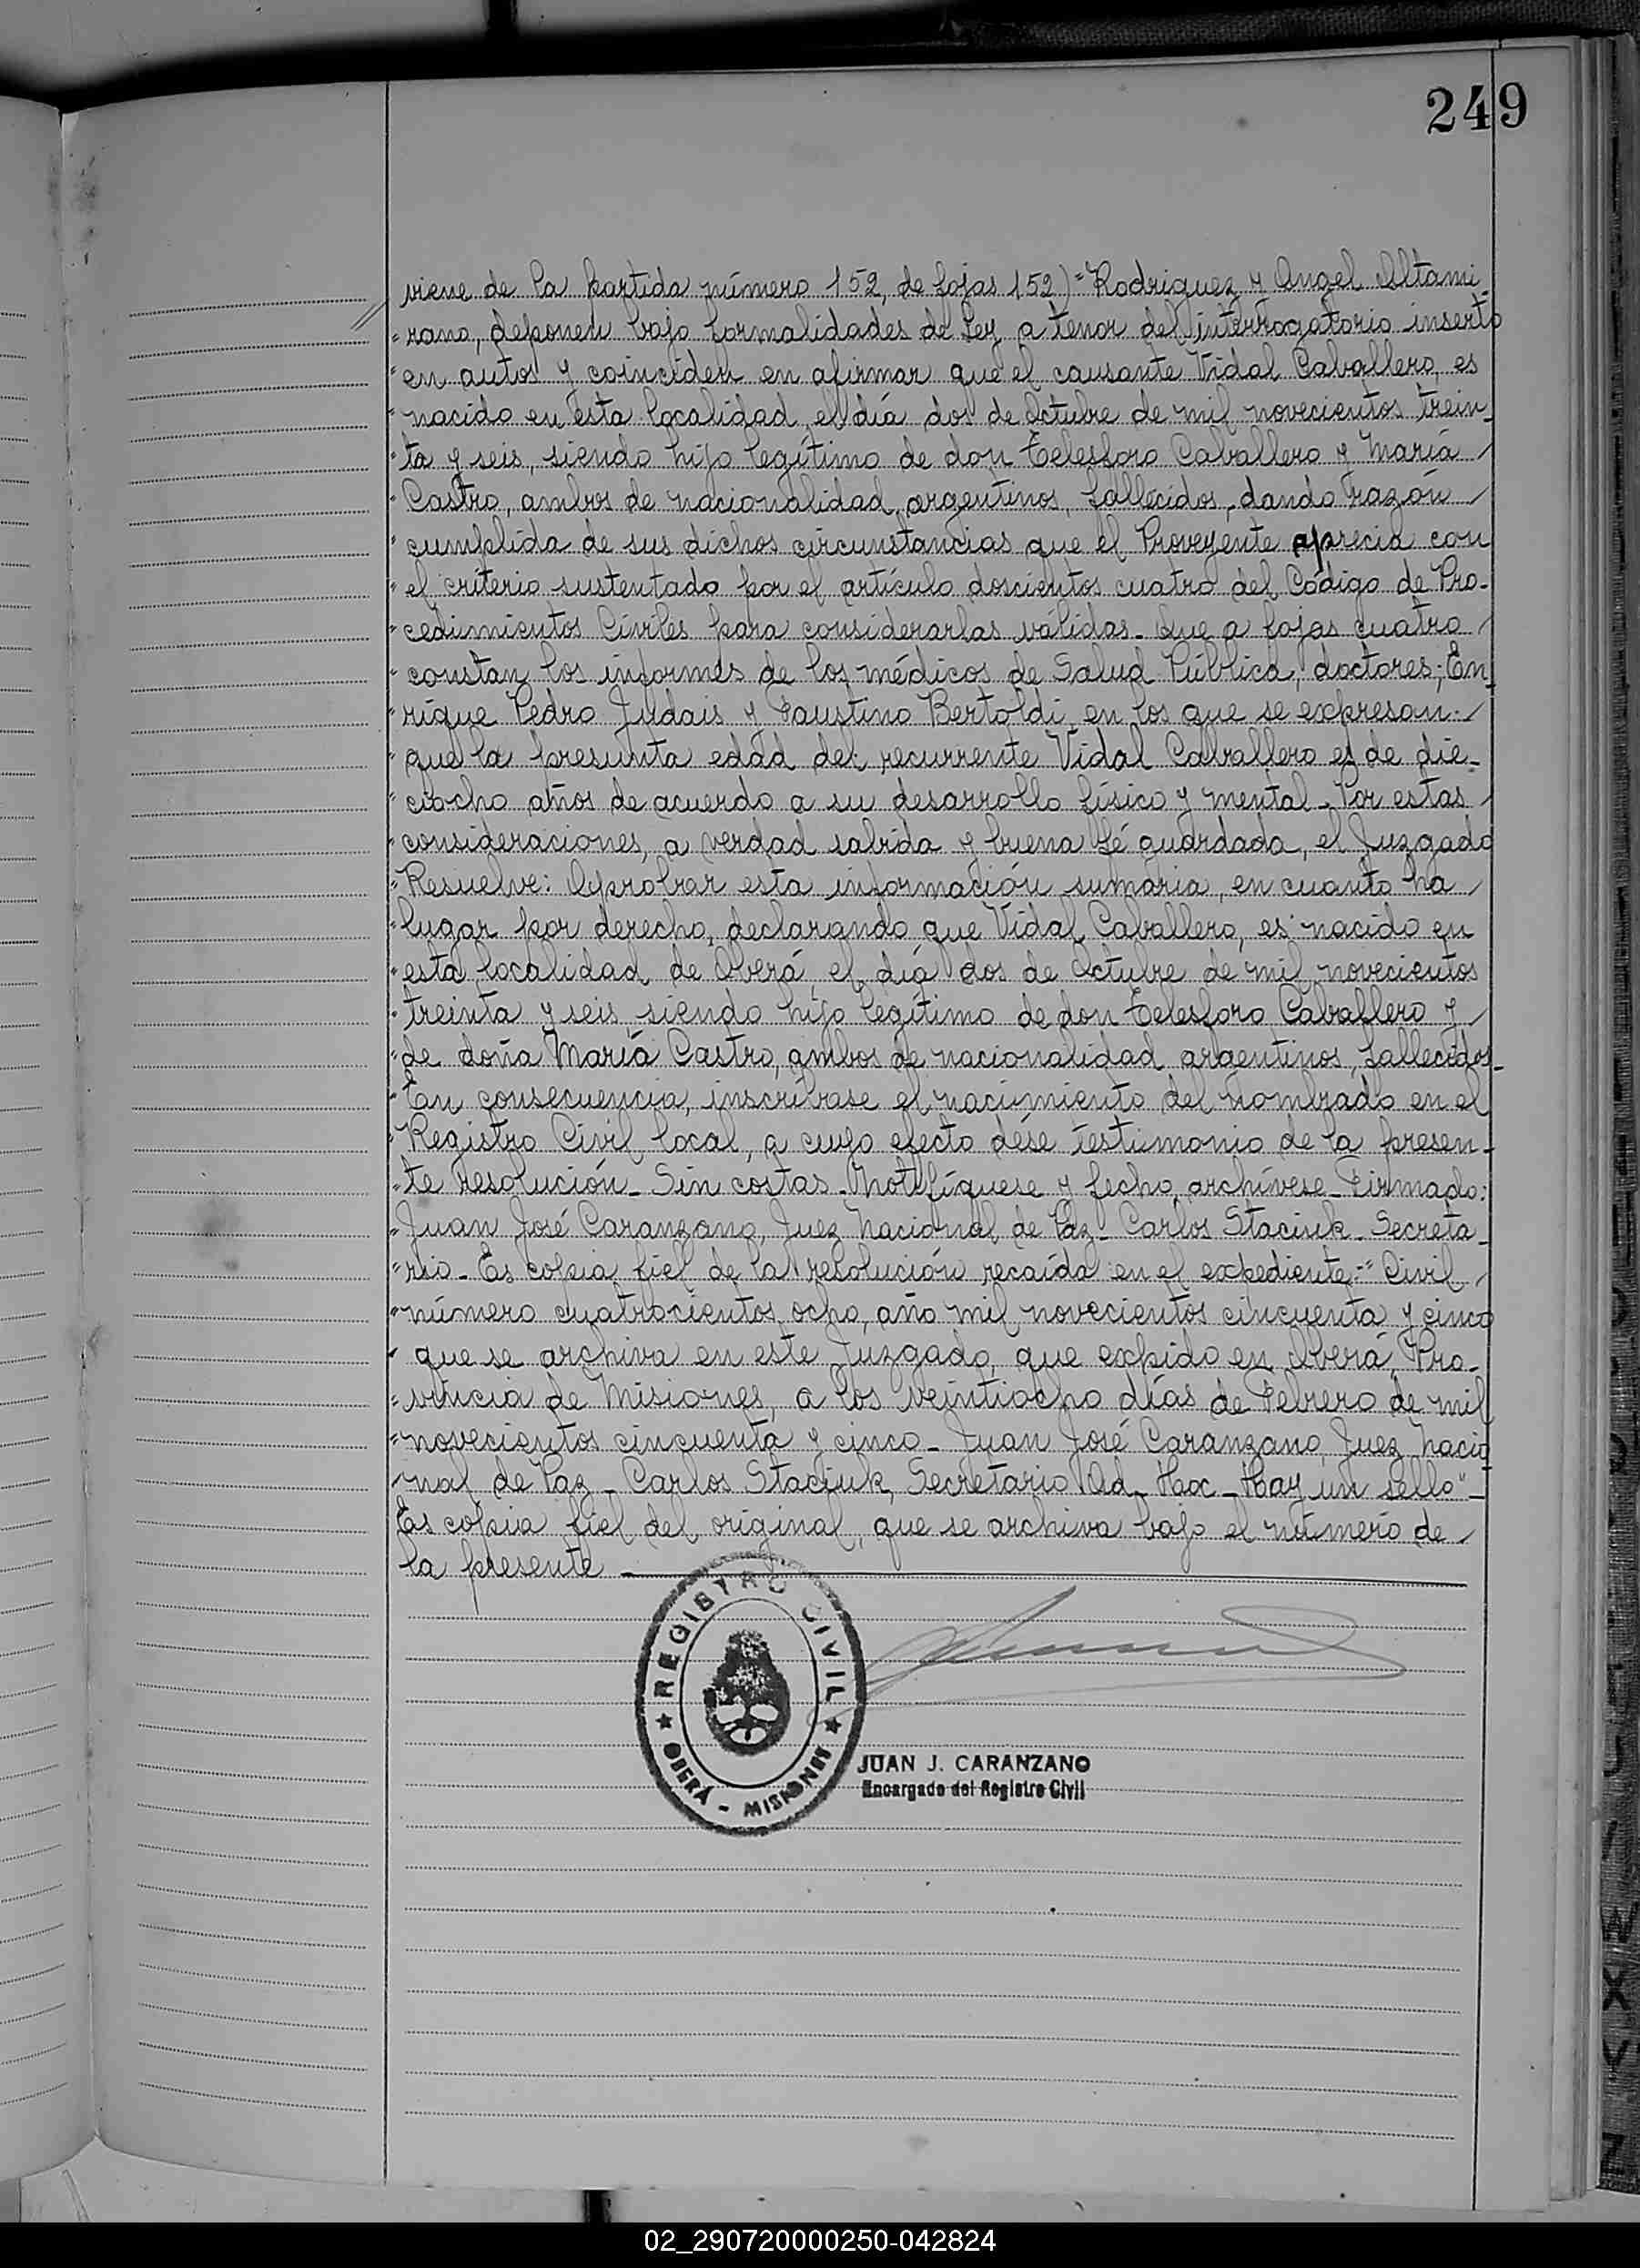 249
viene de la partida número 152, de fojas 152)="Rodriguez y Angel Altami-
"rano, deponen bajo formalidades de ley a tenor del interrogatorio inserto
"en autos y coinciden en afirmar que el causante Vidal Caballero, es
"nacido en esta localidad, el día dos de Octubre de mil novecientos trein-
"ta y seis, siendo hijo legítimo de don Telesforo Caballero y María /
"Castro, ambos de nacionalidad argentinos, fallecidos, dando razón /
"cumplida de sus dichos circunstancias que el Proveyente aprecia con
"el criterio sustentado por el artículo doscientos cuatro del Código de Pro-
"cedimientos Civiles para considerarlas válidas_ Que a fojas cuatro /
"constan los informes de los médicos de Salud Pública, doctores; En-
"rique Pedro Judais y Faustino Bertoldi, en los que se expresan: /
"que la presunta edad del recurrente Vidal Caballero es de die-
"ciocho años de acuerdo a su desarrollo físico y mental_ Por estas /
"consideraciones, a verdad sabida y buena fé guardada, el Juzgado
"Resuelve: Aprobar esta información sumaria, en cuanto ha /
"lugar por derecho, declarando que Vidal Caballero, es nacido en
"esta localidad de Oberá, el día dos de Octubre de mil novecientos
"treinta y seis, siendo hijo legítimo de don Telesforo Caballero y /
"de doña María Castro, ambos de nacionalidad argentinos, fallecidos_
"En consecuencia, inscríbase el nacimiento del nombrado en el
"Registro Civil local, a cuyo efecto dése testimonio de la presen-
"te resolución_ Sin costas_ Notifíquese y fecho, archívese_ Firmado:
"Juan José Caranzano, Juez Nacional de Paz_ Carlos Staciuk_ Secreta-
"rio_ Es copia fiel de la resolución recaída en el expediente:" Civil /
"número cuatrocientos ocho, año mil novecientos cincuenta y cinco
" que se archiva en este Juzgado, que expido en Oberá, Pro-
"vincia de Misiones, a los veintiocho días de Febrero de mil
"novecientos cincuenta y cinco_ Juan José Caranzano, Juez Nacio-
"nal de Paz_ Carlos Staciuk, Secretario Ad_Hoc_ Hay un sello"_
Es copia fiel del original, que se archiva bajo el número de /
la presente
REGISTRO CIVIL
★ OBERÁ - MISIONES ★
JUAN J. CARANZANO
Encargado del Registro Civil
02_290720000250-042824